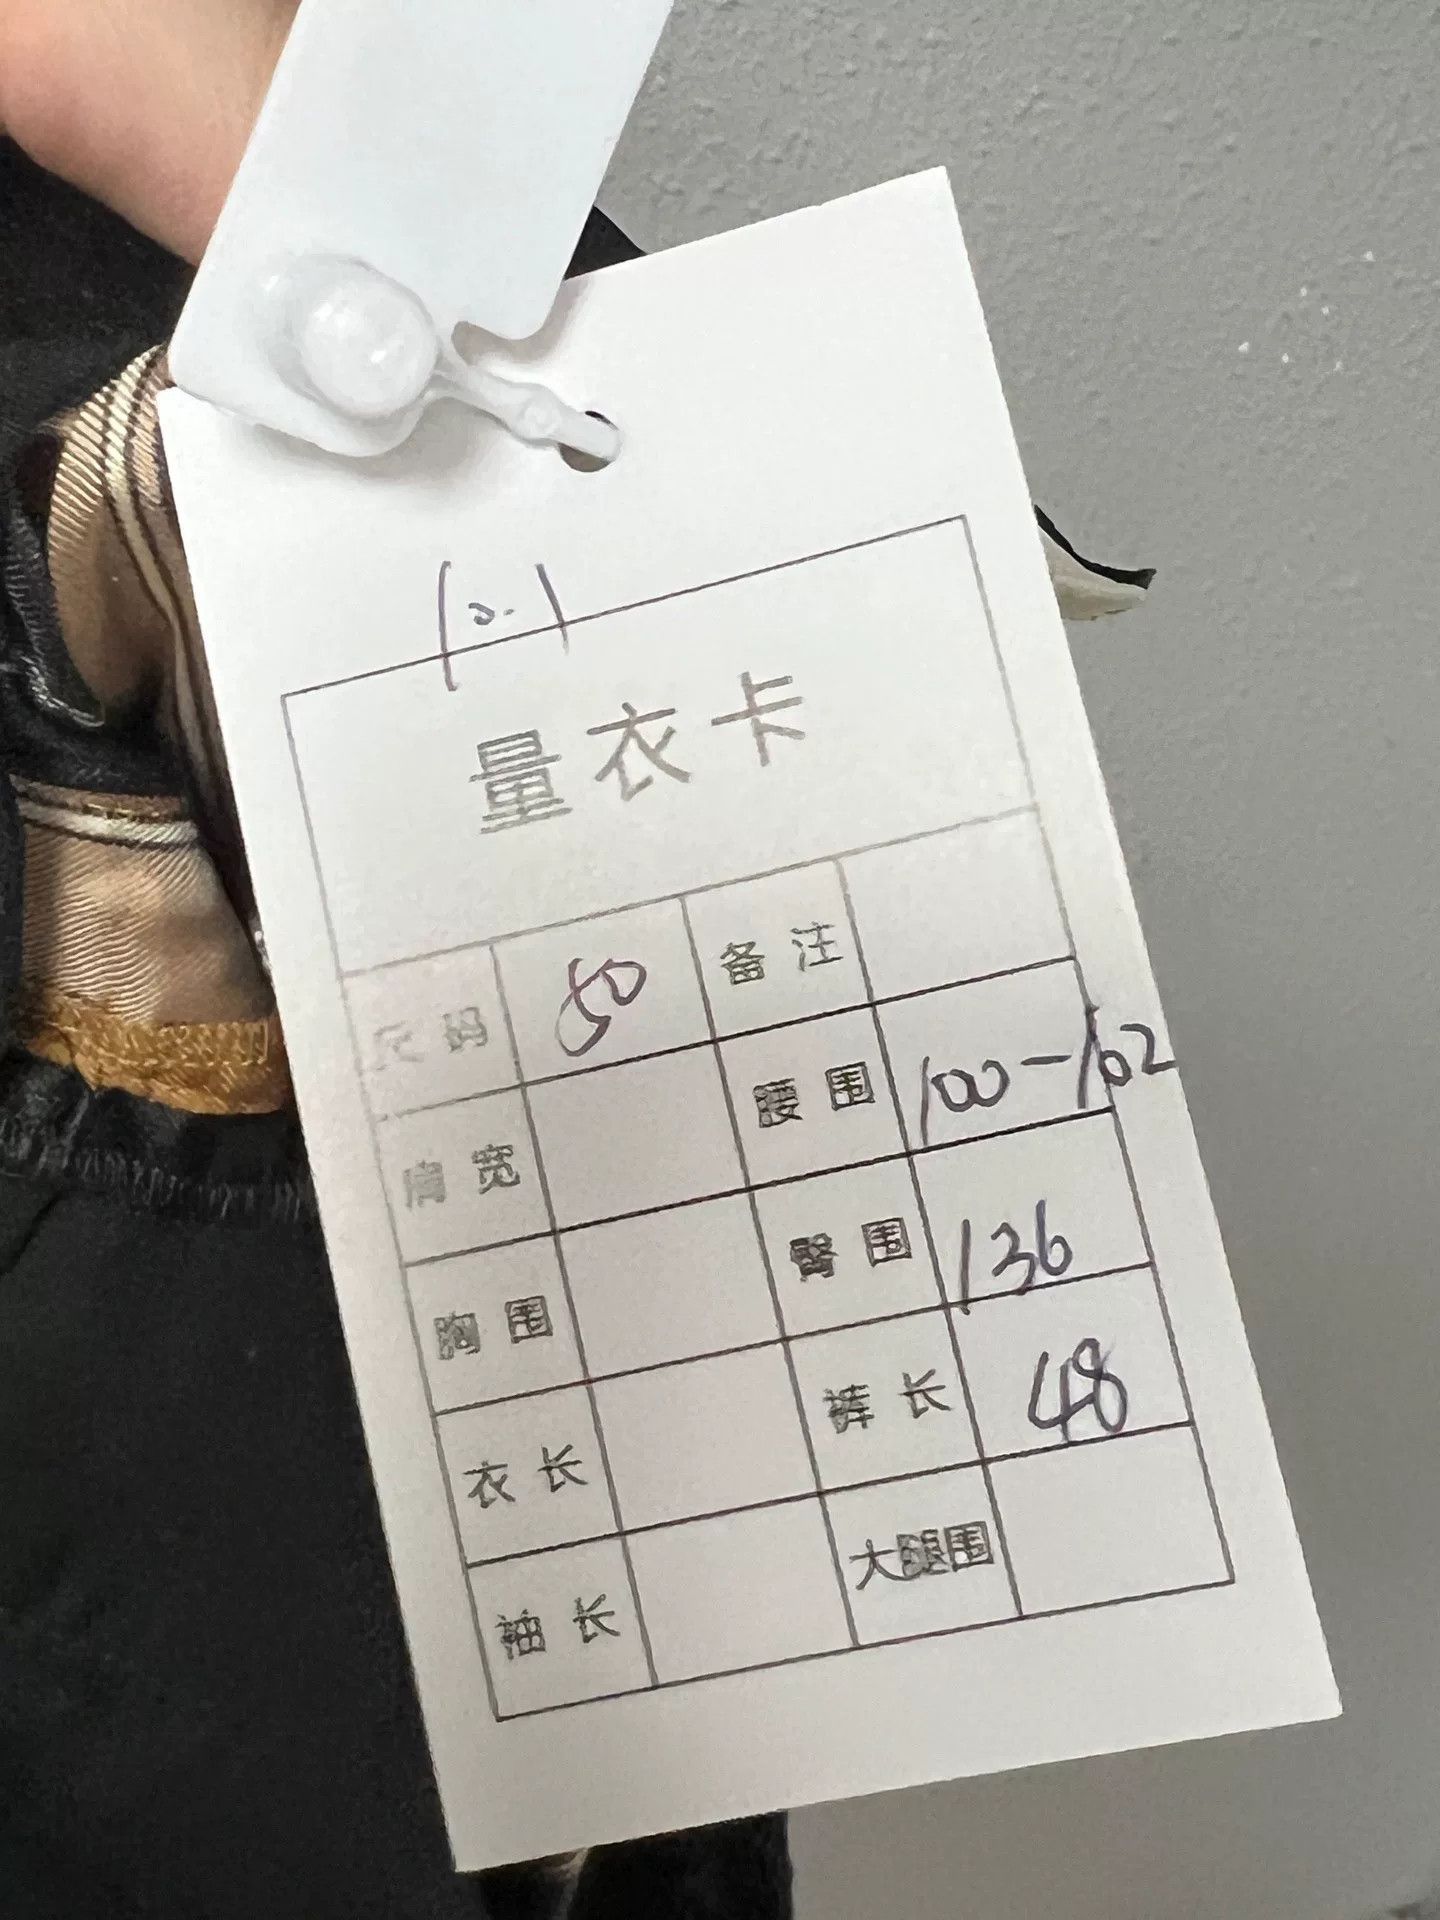 量衣卡
尺码 50 备注
肩宽 腰围 100-102
胸围 臀围 136
衣长 裤长 48
袖长 大腿围